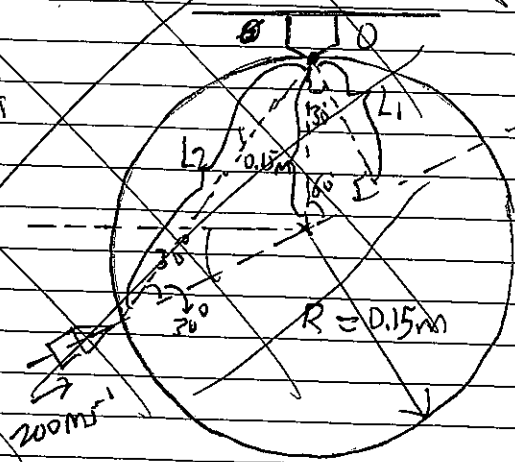 O
L1
30°
L2
0.15m
60°
30°
30°
R = 0.15m
200ms⁻¹